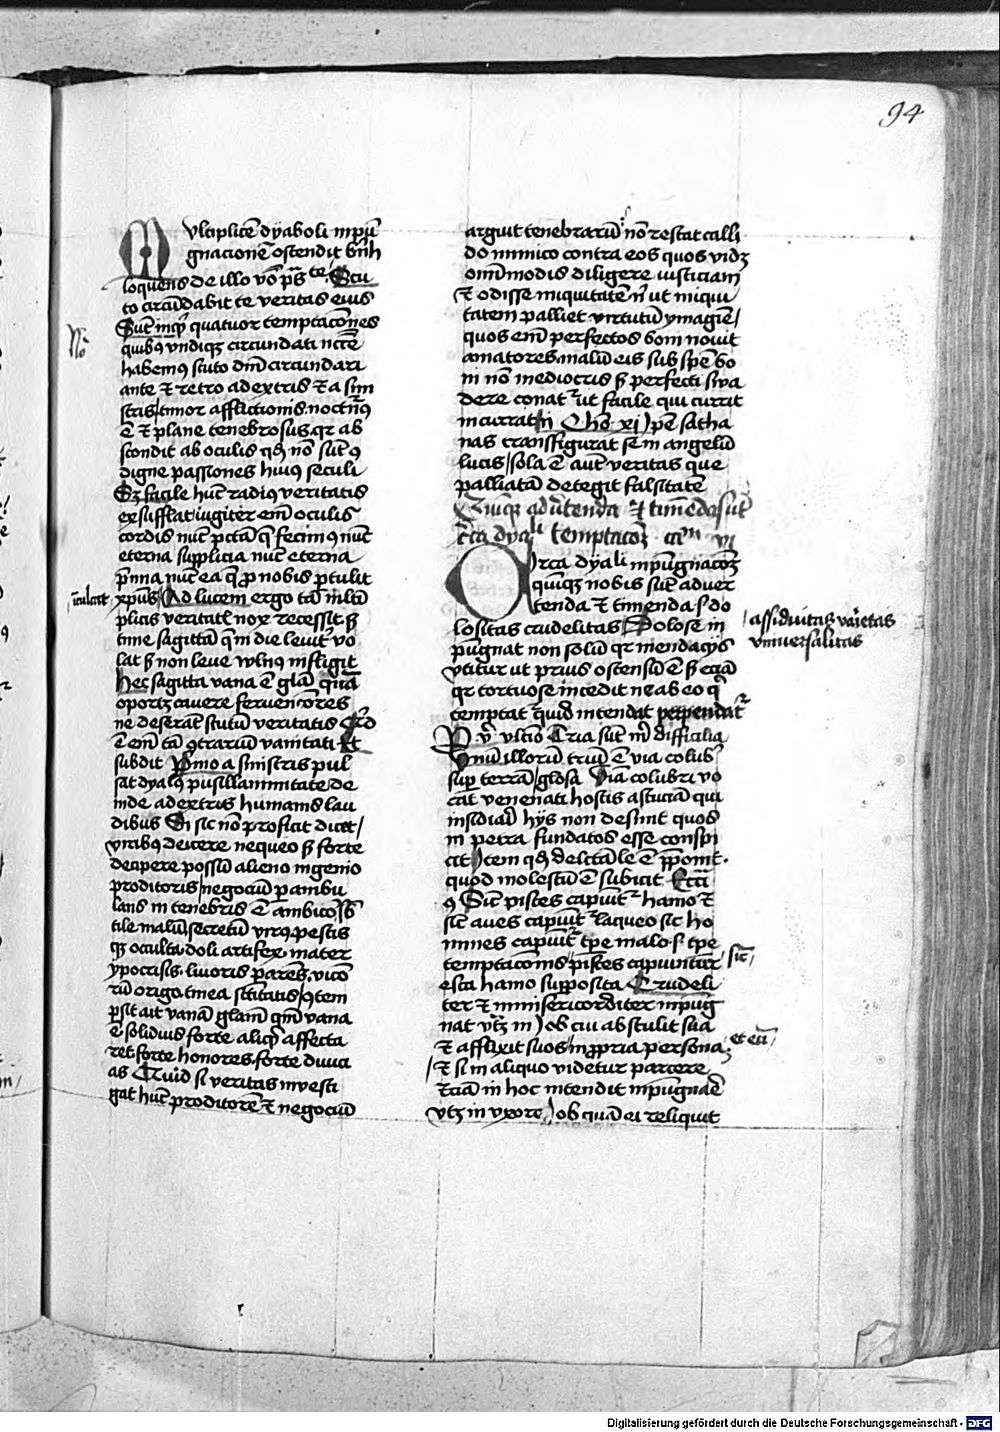 94
Multiplicē dyaboli inpu
gnacionē ostendit bn̄h
loquens de illo vō ps̄ te Scu
to circūdabit te veritas eius
Sūt inqͥ quatuor temptacōnes
quibꝯ vndiqꝫ circundati nccē
habemꝯ scuto dn̄i circundari
ante et retro a dextris et a sinī
stris timor afflictionis noctnꝯ
ē et plane tenebrosus qr ab
scondit ab oculis qꝫ non sūt ꝯ
digne passiones huiꝰ seculi
Sꝫ facile hūc radiꝰ veritatis
exsufflat iugiter em̄ oculis
cordis nūc pctā q̄ fecimꝰ nūc
eterna supplicia nūc eterna
p̄mia nūc ea q̄ p nobis ꝑtulit
inculcat
xp̄us Ad lucem ergo tā mltī
plicis veritatis nox recessit sꝫ
time sagittā q̄ in die leuiť vo
lat sꝫ non leue wlnꝰ infligit
Hec sagitta vana ē gl̄a quā
oportꝫ cauere feruenc̄ores
ne deserāt scutū veritatis Qͥd
ē em̄ tā ꝯtrariū vanitati Et
subdit Pͥmo a sinistris pul
sat dyalꝰ pusillanimitate de
inde a dextris humanis lau
dibus Si sic nō proficit dicet
viribꝰ deicere nequeo sꝫ forte
decipere possū alieno ingenio
proditoris negociū ꝑambu
lans in tenebris ē ambico sb̄
tile malū secretū virꝯ pestis
qꝫ occulta doli artifex mater
ypocrisis liuoris parēs vicō
rū origo tinea sc̄titatis Item
ꝑsit ait vanā glam̄ qm̄ vana
ē solidius forte aliqͥ affecta
ret forte honores forte diuici
as Quid si veritas inuesti
gat hūc proditorē et negociū
arguit tenebrarū nō restat calli
do inimico contra eos quos vidꝫ
om̄imodis diligere iusticiam
et odisse iniquitatē nͥ ut iniqui
tatem palliet virtutū ymagiē
quos em̄ perfectos boni nouit
amatores malū eis sub spē bo
ni nō mediocris sꝫ perfecti swa
dere conať ut facile qui currit
incurrat ii Cho xi Ipē satha
nas transfigurat se in angelū
lucis sola ē autē veritas que
palliatā detegit falsitatē
Quinqꝫ aduertenda et timēda sūt
circa dyali temptacōꝫ cam vi
Circa dyali inpugnacōꝫ
quinqꝫ nobis sūt aduer
tenda et timenda s do
assiduitas varietas
vniuersalitas
lositas crudelitas Dolose in
pugnat non solū qr mendacijs
vtitur ut prius ostensū ē sꝫ eciā
qr tortuose incedit ne ab eo qͥ
temptať quid intendat perpendať
Pv vltīo Tria sūt mͥ difficilia
Vnū illorū triū ē via colubͥ
suꝑ terrā glosa Viā colubri vo
cat venenati hostis astuciā qui
insidiādͥ hijs non desinit quos
in petra fundatos esse conspi
cit Item qꝫ delctāle ē ꝓponit
quod molestū ē subicit Ecci
ꝯ Sicut pisces capiūť hamo et
sicut aues capiūť laqueo sic ho
mines capiūť tp̄e malo s tp̄e
temptacōnis pisces capiuntur sic
esca hamo supposita Crudeli
ter et inmisericorditer inpug
nat vtꝫ iu Iob cui abstulit sua
et afflixit suos in ꝓpria persona et eū
et si in aliquo videtur parcere
eciā in hoc intendit inpugnaē
vtꝫ in vxore Iob quā ei reliquit
Digitalisierung gefördert durch die Deutsche Forschungsgemeinschaft - DFG